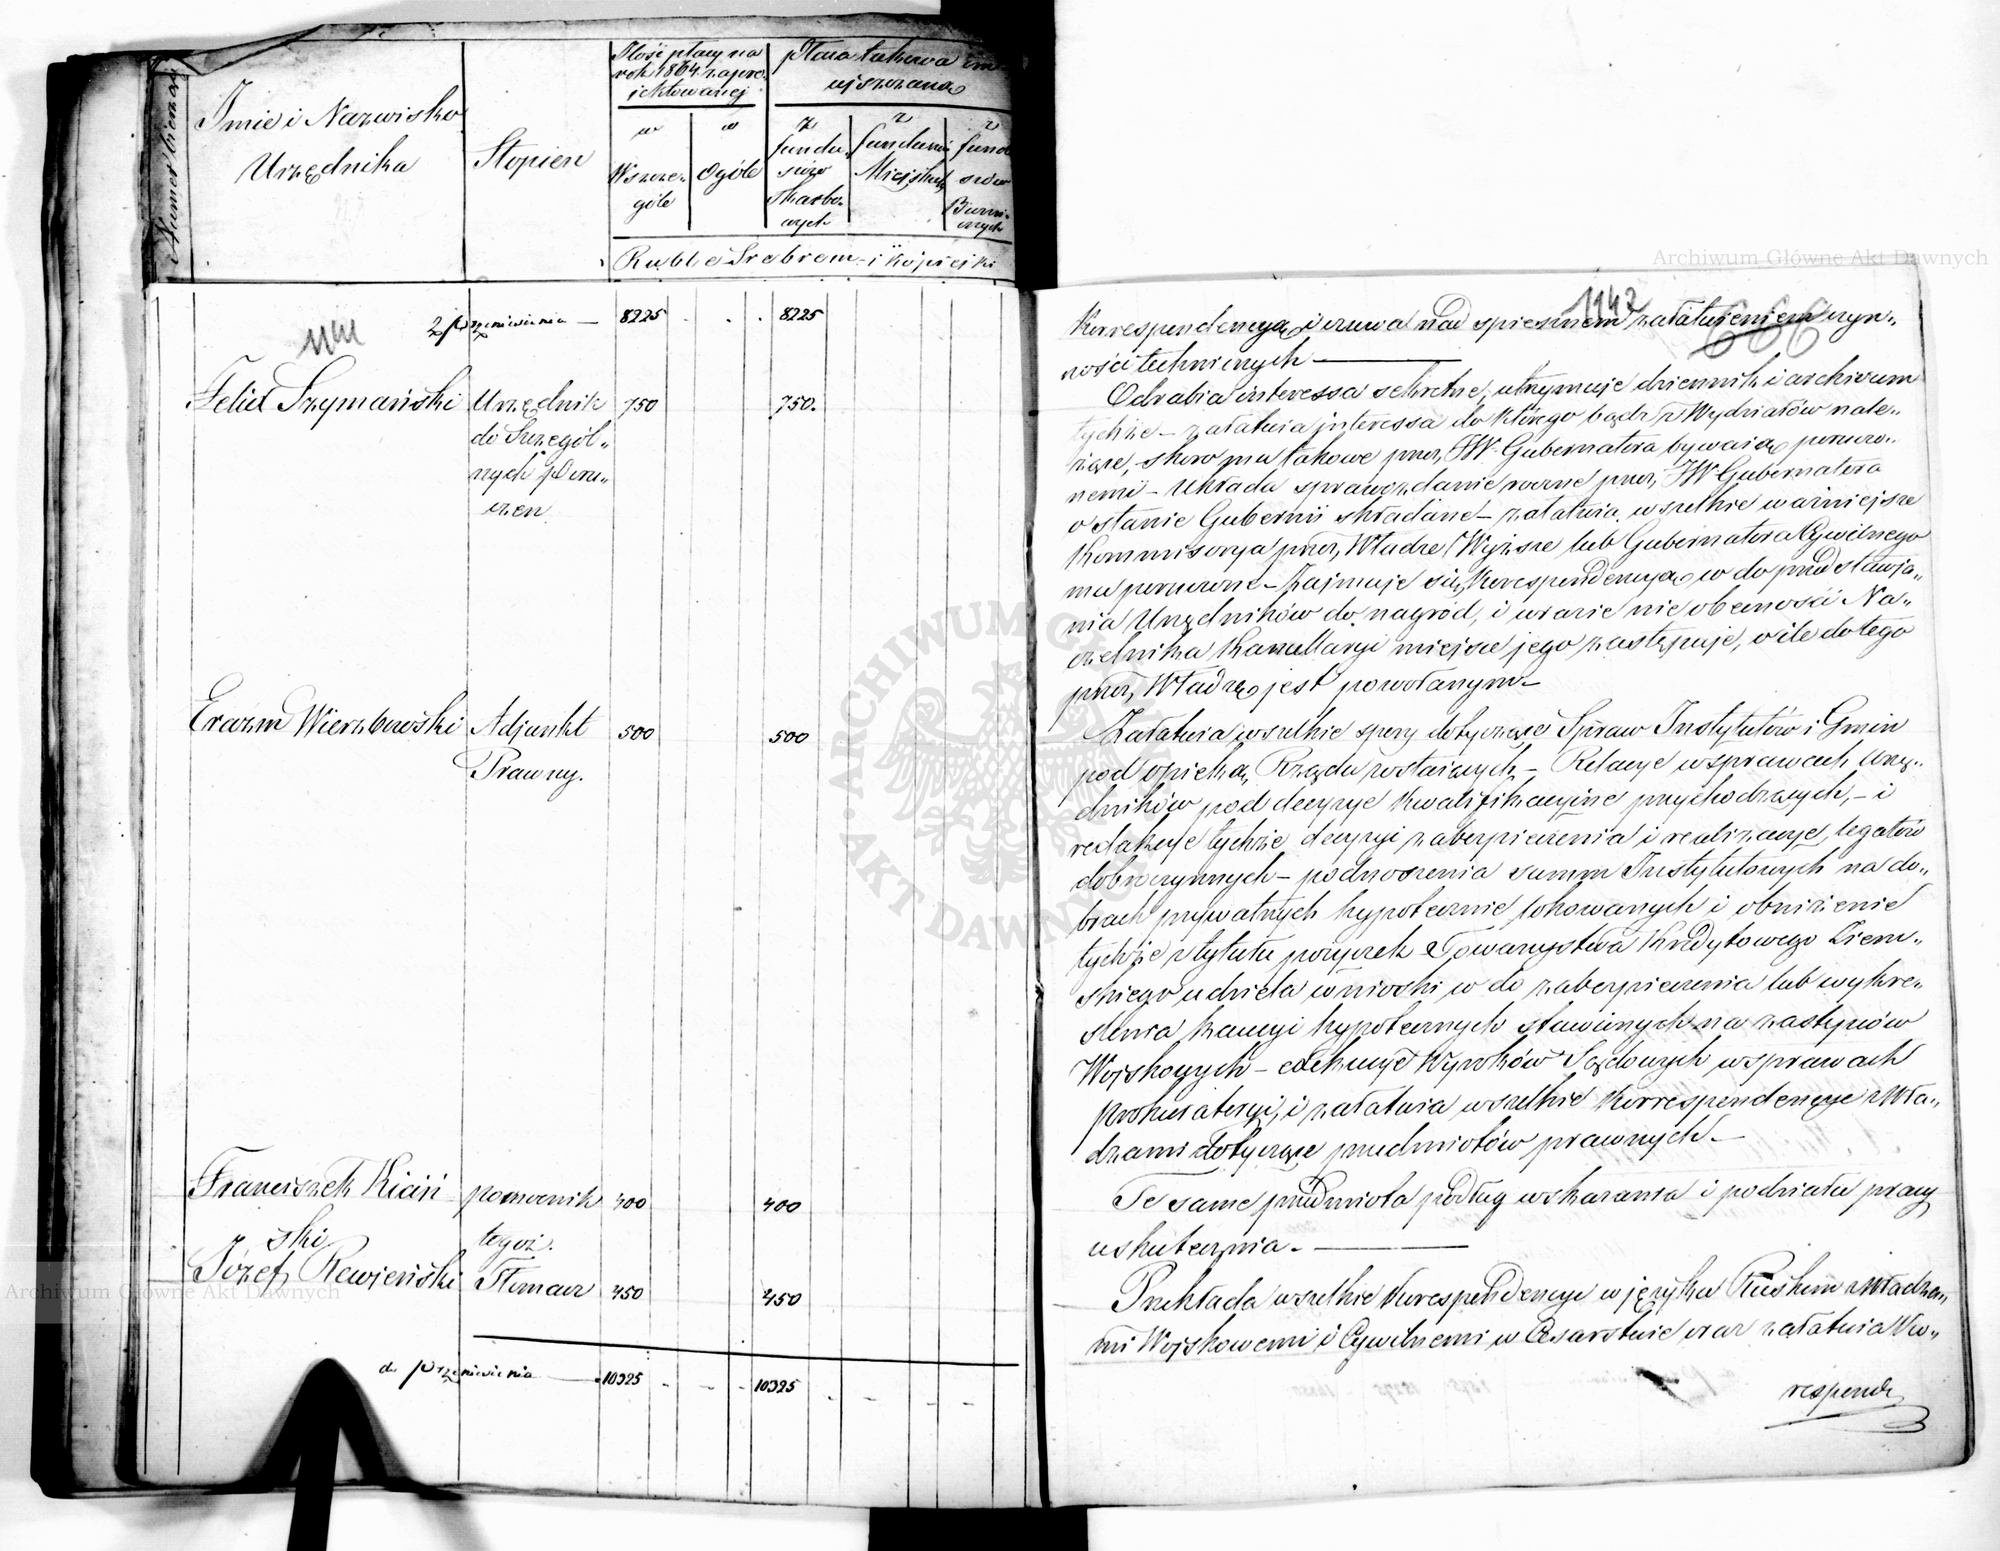 Numer bieżący
Imie i Nazwisko
Urzędnika
Stopień
Ilość płacy na
rok 1864 zapro„
jektowanej
Płaca takowa um„
ujszczana
w
Wszcze„
góle
w
Ogóle
z
fundu„
szów
Skarbo„
wych
z
funduszów
Miejskich
z
fundu
szów
Bieżni„
cznych
Ruble Srebrem i kopiejki
z przeniesienia — 8225 . . . 8225
Felix Szymański Urzędnik 750 750.
do Szczegól„
nych Poru„
czen
Erazm Wierzbowski Adjunkt 500 500
Prawny.
Franciszek Kiciń pomocnik 400 400
ski tegoż.
Józef Rewieński Tłomacz 450 450
do przeniesienia — 10325 - - - 10325 - - - -
1142
666
Korrespondencyą i czuwa nad spiesznem załatwieniem czyn„
ności technicznych —
Odrabia interessa sekretne, utrzymuje dziennik i archiwum
tychże – załatwia interessa do którego bądź z Wydziałów nale„
żące, skoro mu takowe przez JW Gubernatora bywają poruczo„
nemi – układa sprawozdanie roczne przez JW Gubernatora
o stanie Gubernii składane – załatwia wszelkie ważniejsze
Kommisorya przez Władze Wyższe lub Gubernatora Cywilnego
mu poruczone – Zajmuje się Korespondencyą w do przedstawia„
nia Urzędników do nagród, i w razie nieobecności Na„
czelnika Kancellaryi miejsce jego zastępuje, o ile do tego
przez Władzę jest powołanym –
Załatwia wszelkie spory dotyczące Spraw Instytutów i Gmin
pod opieką Rządu zostających – Relacye w sprawach Urzę„
dników pod decyzye kwalifikacyjne przychodzących, – i
redakcye tychże decyzyi zabezpieczenia i realizacye legatów
dobroczynnych – podnoszenia summ Instytutowych na do„
brach prywatnych hypotecznie lokowanych i obniżenie
tychże z tytułu pożyczek Towarzystwa Kredytowego Ziem„
skiego udziela wnioski w do zabezpieczenia lub wykre„
slenia kaucyi hypotecznych stawionych na zastępców
Wojskowych – exekucye Wyroków Sądowych w sprawach
prokuratoryi, i załatwia wszelkie Korrespondencye z Wła„
dzami dotyczące przedmiotów prawnych. –
Te same przedmiota podług wskazania i podziału pracy
uskutecznia. —
Przekłada wszelkie Korespondencye w języku Ruskim z Władza„
mi Wojskowemi i Cywilnemi w Cesarstwie oraz załatwia Ko„
responde
Archiwum Główne Akt Dawnych
Archiwum Główne Akt Dawnych
ARCHIWUM GŁÓWNE AKT DAWNYCH